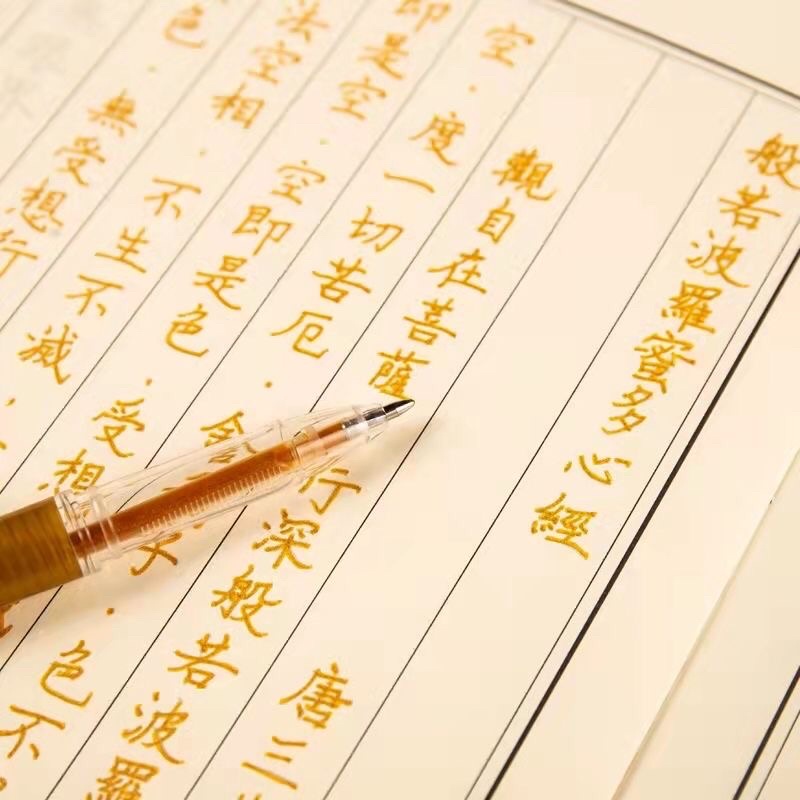 般若波羅蜜多心經
唐三
觀自在菩薩行深般若波羅
空．度一切苦厄．舍子．色不
即是空．空即是色．受想
法空相．不生不滅．
色．無受想行